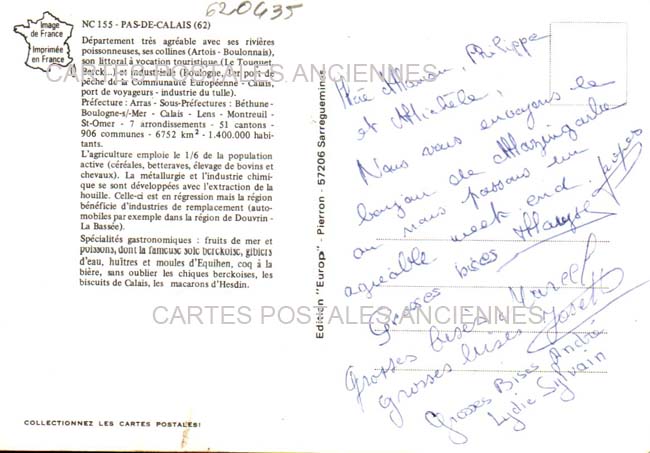 620435
Image
de France
Imprimée
en France
NC 155 - PAS-DE-CALAIS (62)
Département très agréable avec ses rivières
poissonneuses, ses collines (Artois - Boulonnais),
son littoral à vocation touristique (Le Touquet,
Berck...) et industrielle (Boulogne, 1er port de
pêche de la Communauté Européenne - Calais,
port de voyageurs - industrie du tulle).
Préfecture : Arras - Sous-Préfectures : Béthune-
Boulogne-s/Mer - Calais - Lens - Montreuil -
St-Omer - 7 arrondissements - 51 cantons -
906 communes - 6752 km² - 1.400.000 habi-
tants.
L'agriculture emploie le 1/6 de la population
active (céréales, betteraves, élevage de bovins et
chevaux). La métallurgie et l'industrie chimi-
que se sont développées avec l'extraction de la
houille. Celle-ci est en régression mais la région
bénéficie d'industries de remplacement (auto-
mobiles par exemple dans la région de Douvrin -
La Bassée).
Spécialités gastronomiques : fruits de mer et
poissons, dont la fameuse sole berckoise, gibiers
d'eau, huîtres et moules d'Equihen, coq à la
bière, sans oublier les chiques berckoises, les
biscuits de Calais, les macarons d'Hesdin.
COLLECTIONNEZ LES CARTES POSTALES!
Edition "Europ" - Pierron - 57206 Sarreguemines
CARTES POSTALES ANCIENNES
CARTES POSTALES ANCIENNES
Manou, Philippe
et Michèle,
Nous vous envoyons le
bonjour de Mazingarbe
où nous passons un
agréable week-end.
Grosses bises Maryse
Grosses bises Marcel
grosses bises Josette
Grosses Bises André
Lydie Sylvain